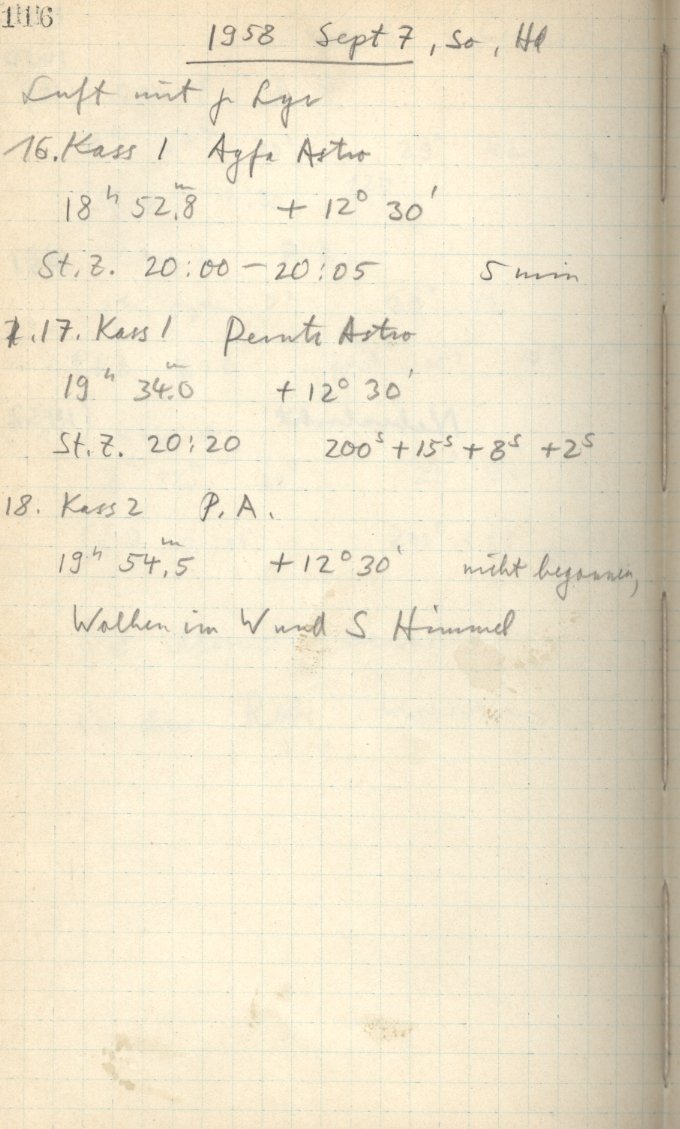 116
1958 Sept 7, So, Hl
Luft mit Lyr
16. Kass 1 Agfa Astro
18ʰ 52ᵐ,8 + 12° 30'
St.Z. 20:00 – 20:05 5 min
17. Kass 1 Perutz Astro
19ʰ 34ᵐ,0 + 12° 30'
St.Z. 20:20 200ˢ + 15ˢ + 8ˢ + 2ˢ
18. Kass 2 P.A.
19ʰ 54ᵐ,5 + 12° 30' nicht begonnen,
Wolken im W und S Himmel